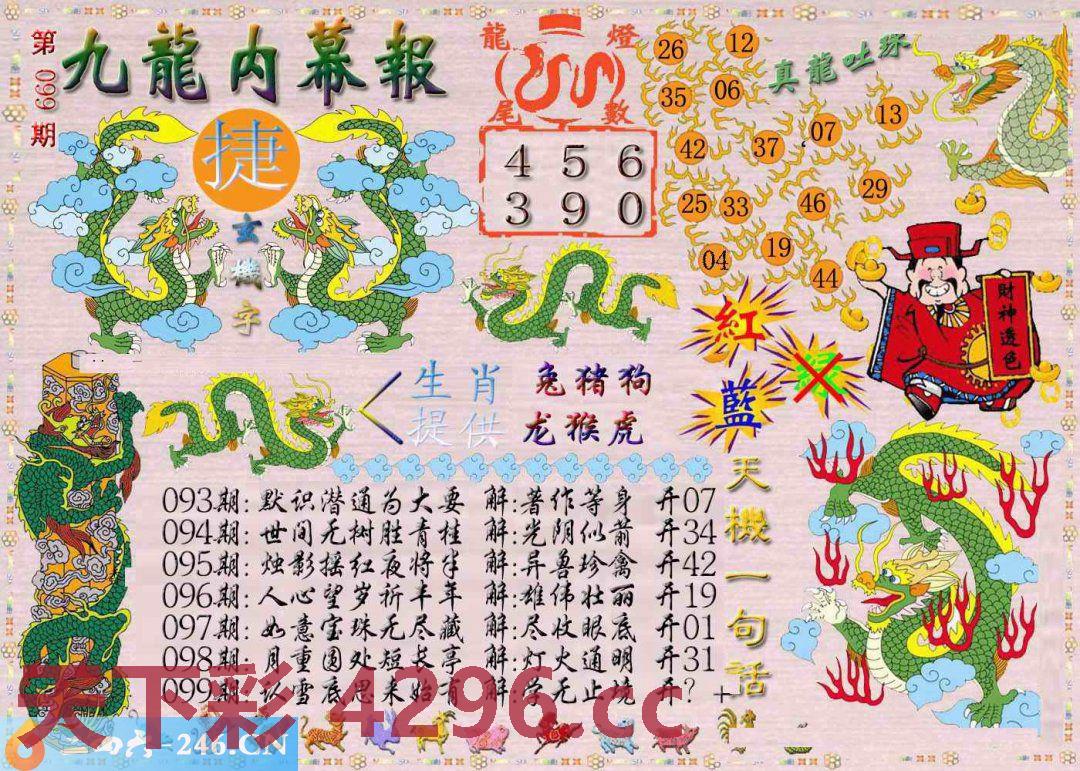 第099期
九龍内幕報
捷
玄機字
龍尾燈數
4 5 6
3 9 0
真龍吐珠
26 12
35 06
42 37 07 13
25 33 46 29
04 19 44
紅
綠
藍
財神透色
生肖提供
兔猪狗
龙猴虎
天機一句話
093期:默识潜通为大要 解:著作等身 开07
094期:世间无树胜青桂 解:光阴似箭 开34
095期:烛影摇红夜将半 解:异兽珍禽 开42
096期:人心望岁祈丰年 解:雄伟壮丽 开19
097期:如意宝珠无尽藏 解:尽收眼底 开01
098期:月重圆处短长亭 解:灯火通明 开31
099期: 雪底思来始有 解:学无止境 开?
天下彩 4296.cc
=246.CN